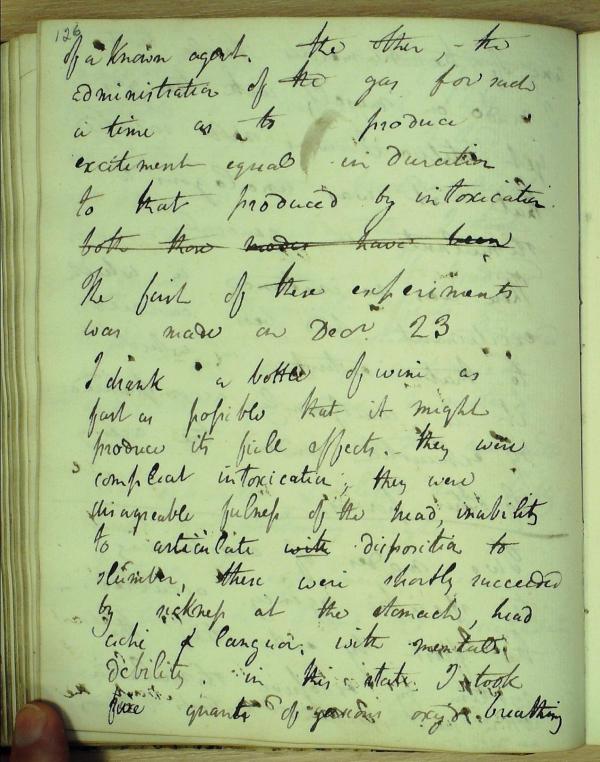 126
of a known agent. the other, - the
administration of the gas for such
a time as to produce
excitement equal in duration
to that produced by intoxication.
both these modes have been
The first of these experiments
was made on Decr 23
I drank a bottle of wine as
fast as possible that it might
produce its full effects. they were
compleat intoxication, they were
disagreable fulness of the head, inability
to articulate with disposition to
slumber, these were shortly succeeded
by sickness at the stomach, head
ache & languor, with mental
debility. in this state I took
five quarts of gaseous oxyd. breathing